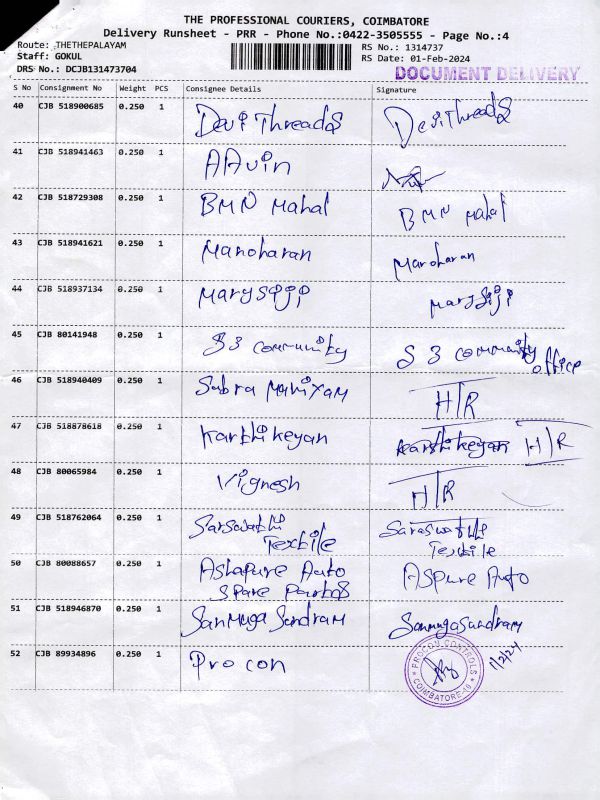 THE PROFESSIONAL COURIERS, COIMBATORE
Delivery Runsheet - PRR - Phone No.:0422-3505555 - Page No.:4
Route: THETHEPALAYAM RS No.: 1314737
Staff: GOKUL RS Date: 01-Feb-2024
DRS No.: DCJB131473704 DOCUMENT DELIVERY
S No Consignment No Weight PCS Consignee Details Signature
40 CJB 518900685 0.250 1 Devi Threads Devi Threads
41 CJB 518941463 0.250 1 AAvin
42 CJB 518729308 0.250 1 BMN Mahal BMN Mahal
43 CJB 518941621 0.250 1 Manoharan Manoharan
44 CJB 518937134 0.250 1 Marysiji Marysiji
45 CJB 80141948 0.250 1 S3 community S 3 community office
46 CJB 518940409 0.250 1 Subra Maniyam H/R
47 CJB 518878618 0.250 1 Karthikeyan Karthikeyan H/R
48 CJB 80065984 0.250 1 Vignesh H/R
49 CJB 518762064 0.250 1 Sarswathi Saraswathi
Textile Textile
50 CJB 80088657 0.250 1 Ashapure Auto ASpure Auto
Spare Parts
51 CJB 518946870 0.250 1 SanMuga Sundram Sanmugasundram
52 CJB 89934896 0.250 1 Procon PROCON CONTROLS COIMBATORE-19 1/2/24